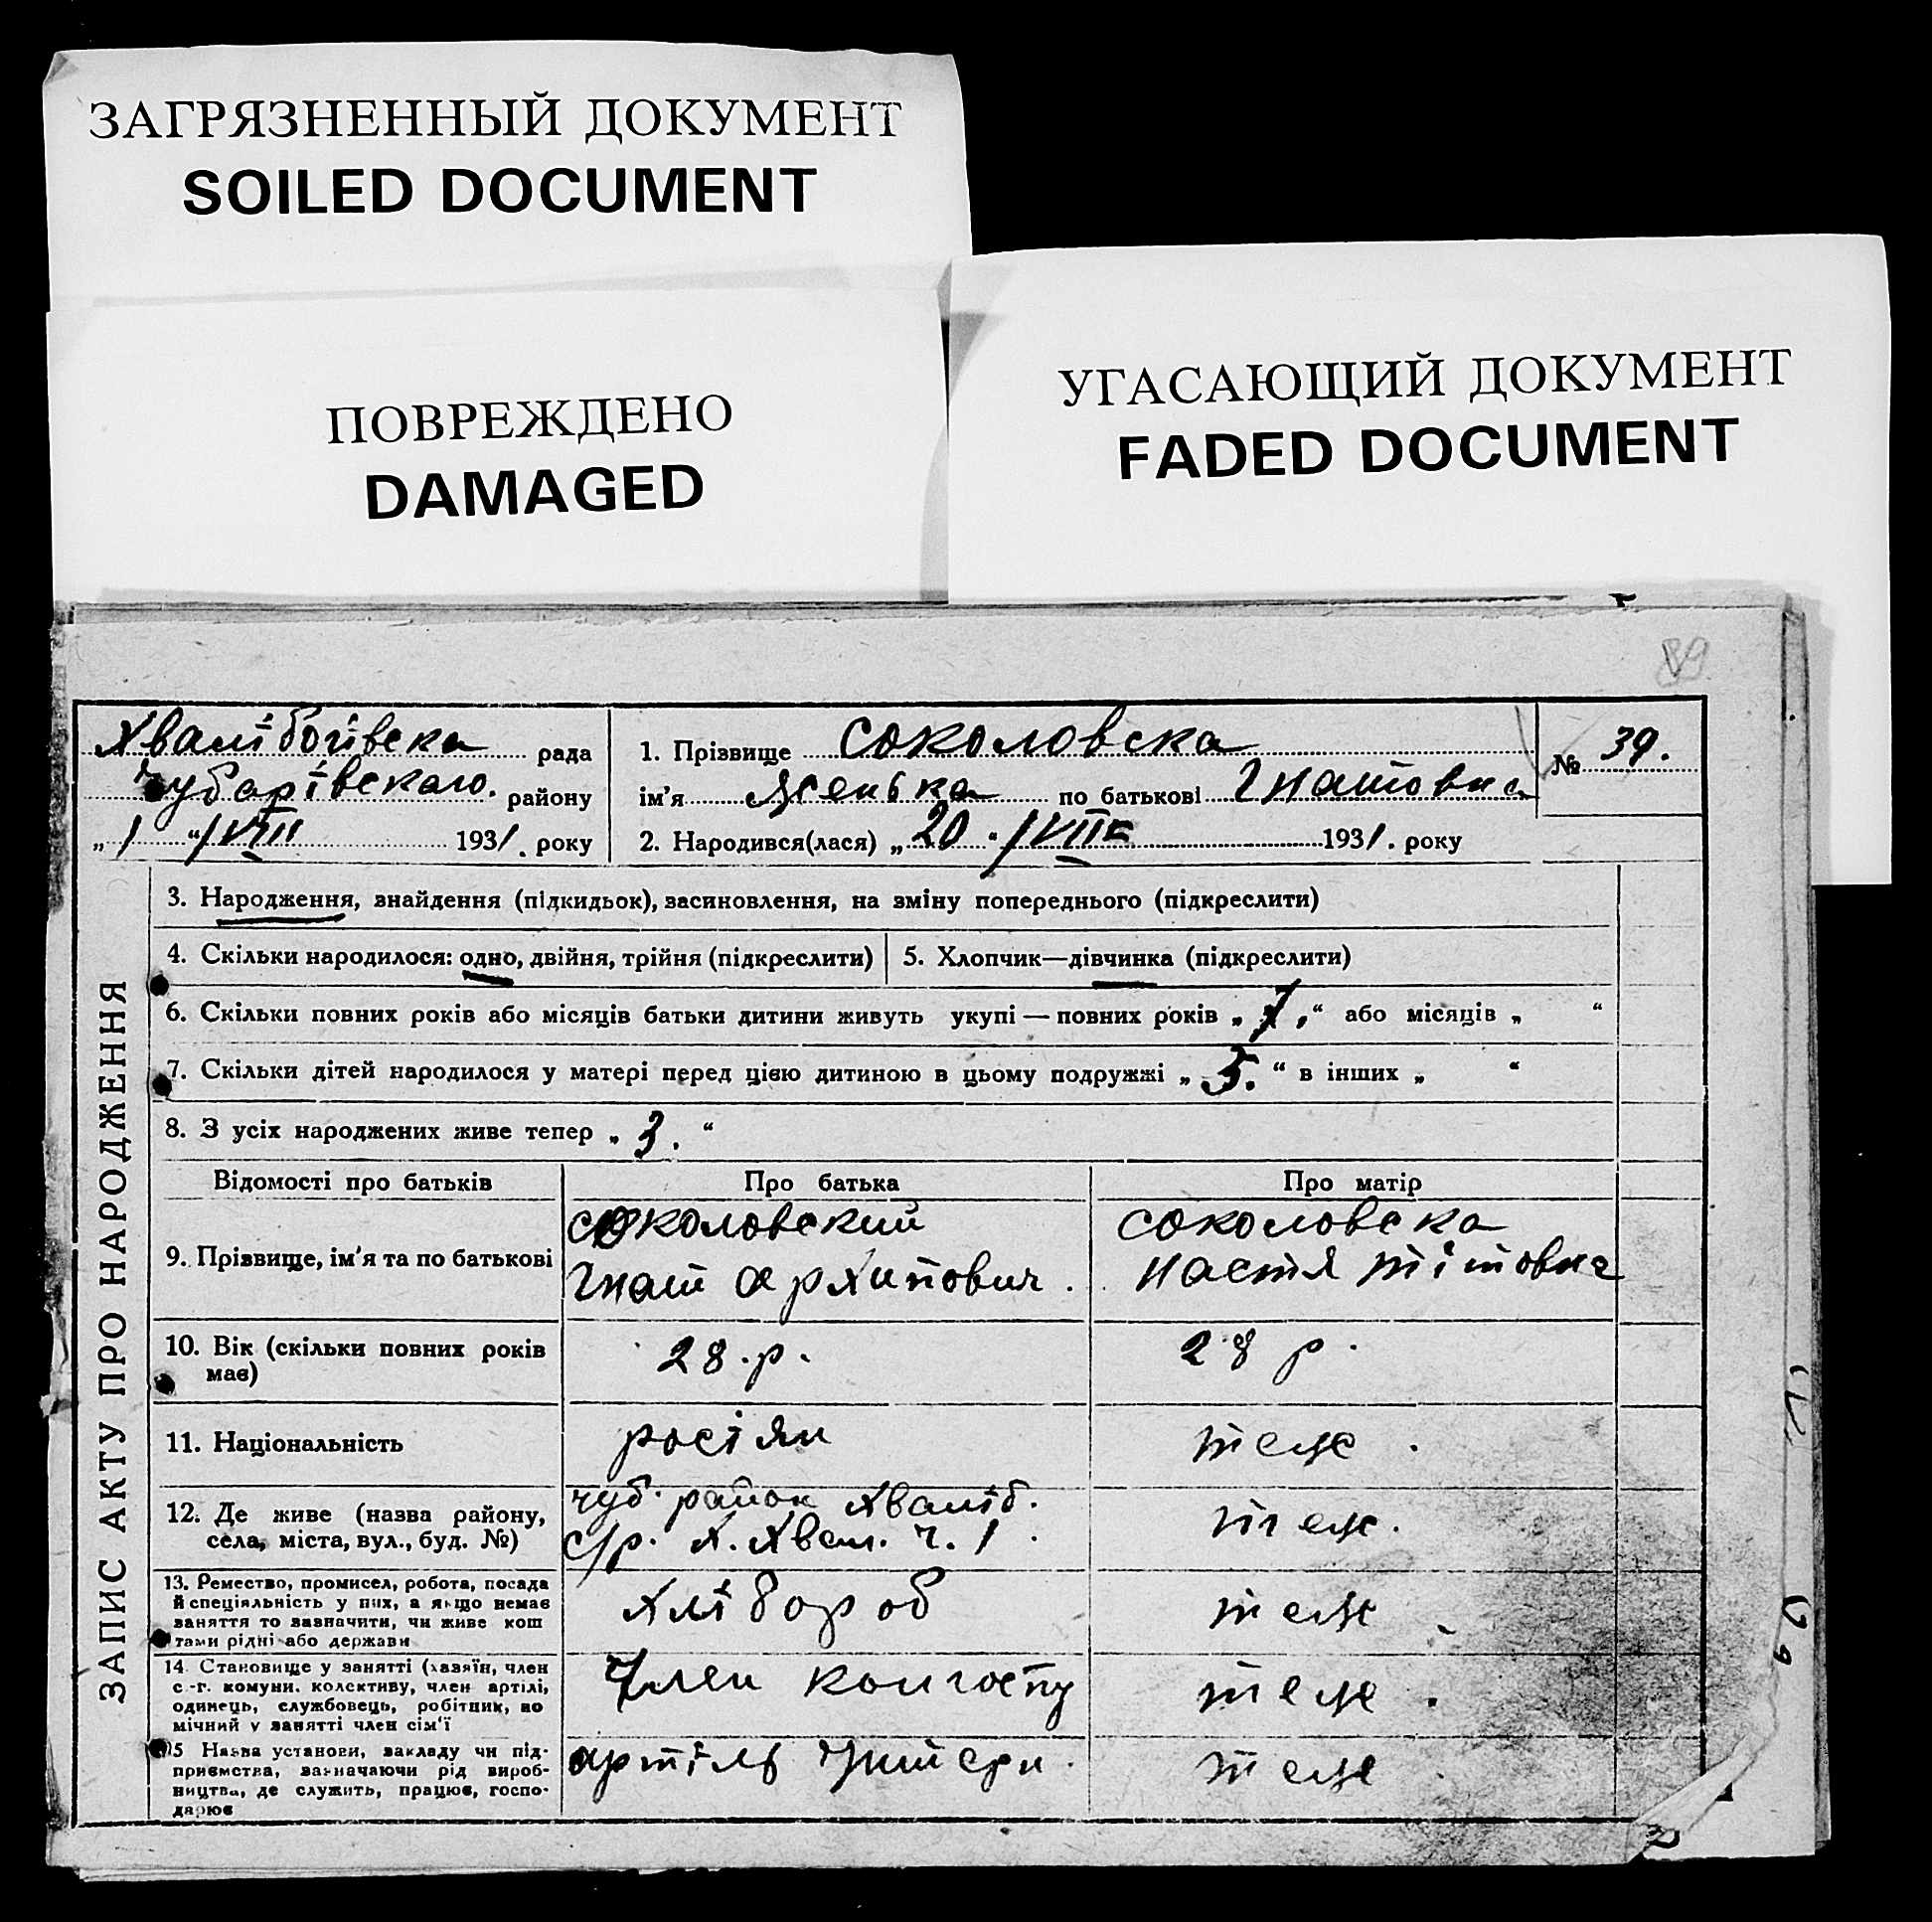 ЗАГРЯЗНЕННЫЙ ДОКУМЕНТ
SOILED DOCUMENT
ПОВРЕЖДЕНО
DAMAGED
УГАСАЮЩИЙ ДОКУМЕНТ
FADED DOCUMENT
89
Хвалібогівска рада
Чубарівского. району
„1“/VIII 1931. року
1. Прізвище Соколовска
ім'я Женька по батькові Гнатовна
2. Народився(лася) „20“/VII 1931. року
№ 39.
ЗАПИС АКТУ ПРО НАРОДЖЕННЯ
3. Народження, знайдення (підкидьок), засиновлення, на зміну попереднього (підкреслити)
4. Скільки народилося: одно, двійня, трійня (підкреслити)
5. Хлопчик—дівчинка (підкреслити)
6. Скільки повних років або місяців батьки дитини живуть укупі — повних років „7.“ або місяців „ “
7. Скільки дітей народилося у матері перед цією дитиною в цьому подружжі „5.“ в інших „ “
8. З усіх народжених живе тепер „3.“
Відомості про батьків Про батька Про матір
9. Прізвище, ім'я та по батькові
Соколовский
Гнат Архипович.
Соколовска
Настя Тітовна
10. Вік (скільки повних років
має)
28.р.
28 р.
11. Національність
росіян
теж.
12. Де живе (назва району,
села, міста, вул., буд. №)
Чуб. район Хваліб.
с/р. Х. Хвал. ч. 1.
теж.
13. Ремество, промисел, робота, посада
й спеціяльність у них, а якщо немає
заняття то зазначити, чи живе кош
тами рідні або держави
хлібороб
теж
14. Становище у занятті (хазяїн, член
с.-г. комуни, колективу, член артілі,
одинець, службовець, робітник, по
мічний у занятті член сім'ї
Член колгоспу
теж.
15 Назва установи, закладу чи під-
приємства, зазначаючи рід вироб-
ництва, де служить, працює, госпо-
дарює
артіль
теж